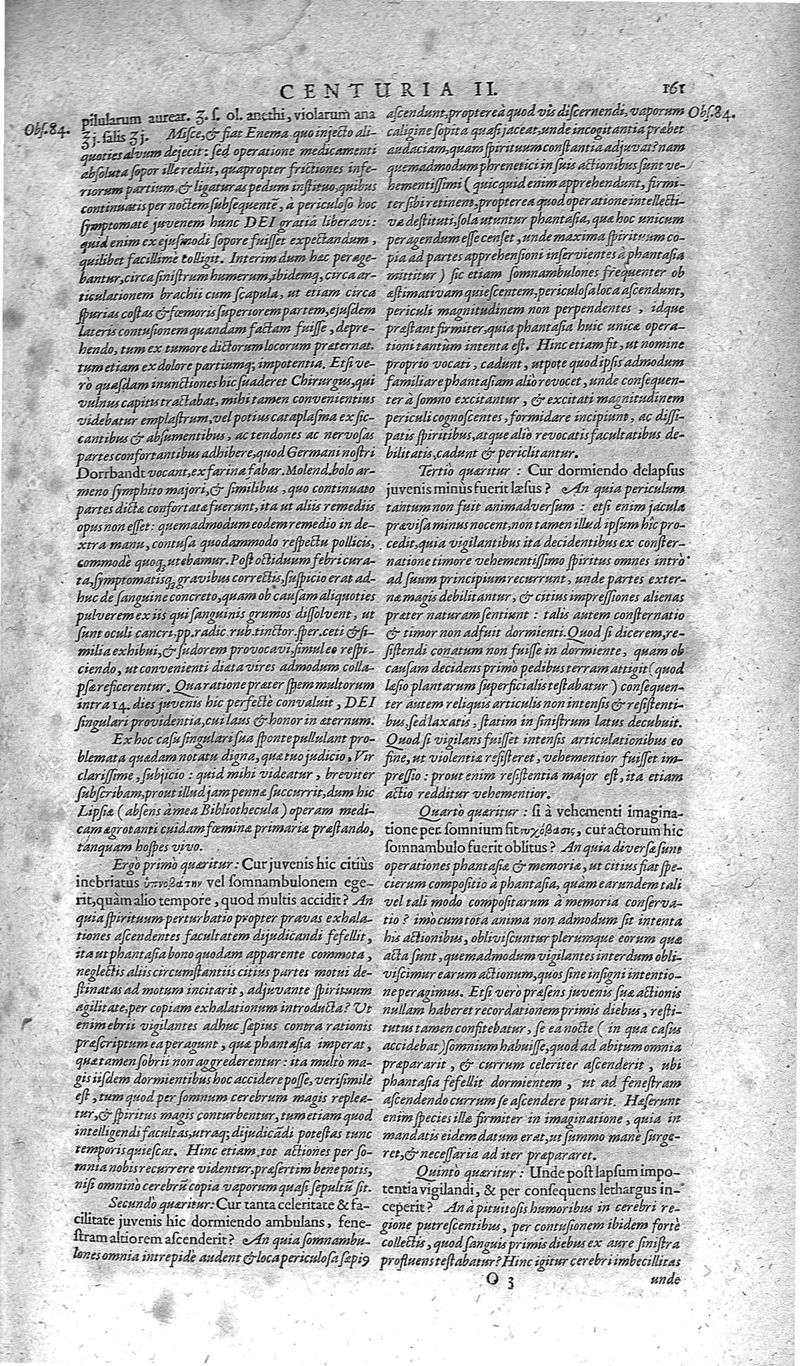 CENTURIA II. 161
Obs. 84.
pilularum aurear. ʒ. ſ. ol. anethi, violarum ana
℥j. ſalis ʒj. Miſce, & fiat Enema quo injecto ali-
quoties alvum dejecit: ſed operatione medicamenti
abſoluta ſopor ille rediit, quapropter frictiones infe-
riorum partium, & ligaturas pedum inſtituo, quibus
continuatis per noctem ſubſequentē, à periculoſo hoc
ſymptomate juvenem hunc DEI gratiâ liberavi:
quid enim ex ejuſmodi ſopore fuiſſet expectandum,
quilibet facillimè colligit. Interim dum hæc perage-
bantur, circa ſiniſtrum humerum, ibidemq, circa ar-
ticulationem brachii cum ſcapula, ut etiam circa
ſpurias coſtas & fœmoris ſuperiorem partem, ejuſdem
lateris contuſionem quandam factam fuiſſe, depre-
hendo, tum ex tumore dictorum locorum præternat.
tum etiam ex dolore partiumq; impotentia. Etſi ve-
rò quaſdam inunctiones hic ſuaderet Chirurgus, qui
vulnus capitis tractabat, mihi tamen convenientius
videbatur emplaſtrum, vel potius cataplaſma ex ſic-
cantibus & abſumentibus, ac tendones ac nervoſas
partes confortantibus adhibere, quod Germani noſtri
Dorrbandt vocant, ex farina fabar. Molend. bolo ar-
meno ſymphito majori, & ſimilibus, quo continuato
partes dictæ confortatæ fuerunt, ita ut aliis remediis
opus non eſſet: quemadmodum eodem remedio in de-
xtra manu, contuſa quodammodo reſpectu pollicis,
commodè quoq, utebamur. Poſt octiduum febri cura-
ta, ſymptomatisq, gravibus correctis, ſuſpicio erat ad-
huc de ſanguine concreto, quam ob cauſam aliquoties
pulverem ex iis qui ſanguinis grumos diſſolvent, ut
ſunt oculi cancri, pp. radic. rub. tinctor. ſper. ceti & ſi-
milia exhibui, & ſudorem provocavi, ſimul eo reſpi-
ciendo, ut convenienti diæta vires admodum colla-
pſæ reficerentur. Qua ratione præter ſpem multorum
intra 14. dies juvenis hic perfectè convaluit, DEI
ſingulari providentia, cui laus & honor in æternum.
Ex hoc caſu ſingulari ſua ſponte pullulant pro-
blemata quædam notatu digna, quæ tuo judicio, Vir
clariſſime, ſubjicio: quid mihi videatur, breviter
ſubſcribam, prout illud jam pennæ ſuccurrit, dum hic
Lipſiæ (abſens à mea Bibliothecula) operam medi-
cam ægrotanti cuidam fœminæ primariæ præſtando,
tanquam hoſpes vivo.
Ergò primò quæritur: Cur juvenis hic citiùs
inebriatus ὑπνοβάτην vel ſomnambulonem ege-
rit, quàm alio tempore, quod multis accidit? An
quia ſpirituum perturbatio propter pravas exhala-
tiones aſcendentes facultatem dijudicandi fefellit,
ita ut phantaſia bono quodam apparente commota,
neglectis aliis circumſtantiis citius partes motui de-
ſtinatas ad motum incitarit, adjuvante ſpirituum
agilitate, per copiam exhalationum introducta? Ut
enim ebrii vigilantes adhuc ſæpius contra rationis
præſcriptum ea peragunt, quæ phantaſia imperat,
quæ tamen ſobrii non aggrederentur: ita multò ma-
gis iiſdem dormientibus hoc accidere poſſe, veriſimile
eſt, tum quod per ſomnum cerebrum magis replea-
tur, & ſpiritus magis conturbentur, tum etiam quod
intelligendi facultas, utraq; dijudicādi poteſtas tunc
temporis quieſcat. Hinc etiam tot actiones per ſo-
mnia nobis recurrere videntur, præſertim bene potis,
niſi omninò cerebrū copia vaporum quaſi ſepultū ſit.
Secundò quæritur: Cur tanta celeritate & fa-
cilitate juvenis hic dormiendo ambulans, fene-
ſtram altiorem aſcenderit? An quia ſomnambu-
lones omnia intrepidè audent & loca periculoſa ſæpiꝰ
Obſ. 84.
aſcendunt, propterea quod vis diſcernendi, vaporum
caligine ſopita quaſi jaceat, unde incogitantia præbet
audaciam, quam ſpirituum conſtantia adjuvat? nam
quemadmodum phrenetici in ſuis actionibus ſunt ve-
hementiſſimi (quicquid enim apprehendunt, firmi-
ter ſibi retinent, propterea quod operatione intellecti-
væ deſtituti, ſola utuntur phantaſia, quæ hoc unicum
peragendum eſſe cenſet, unde maxima ſpirituum co-
pia ad partes apprehenſioni inſervientes à phantaſia
mittitur) ſic etiam ſomnambulones frequenter ob
æſtimativam quieſcentem, periculoſa loca aſcendunt,
periculi magnitudinem non perpendentes, idque
præſtant firmiter, quia phantaſia huic unicæ opera-
tioni tantùm intenta eſt. Hinc etiam fit, ut nomine
proprio vocati, cadunt, utpote quod ipſis admodum
familiare phantaſiam aliò revocet, unde conſequen-
ter à ſomno excitantur, & excitati magnitudinem
periculi cognoſcentes, formidare incipiunt, ac diſſi-
patis ſpiritibus, atque aliò revocatis facultatibus de-
bilitatis, cadunt & periclitantur.
Tertiò quæritur: Cur dormiendo delapſus
juvenis minùs fuerit læſus? An quia periculum
tantum non fuit animadverſum: etſi enim jacula
præviſa minus nocent, non tamen illud ipſum hic pro-
cedit, quia vigilantibus ita decidentibus ex conſter-
natione timore vehementiſſimo ſpiritus omnes intrò
ad ſuum principium recurrunt, unde partes exter-
næ magis debilitantur, & citius impreſſiones alienas
præter naturam ſentiunt: talis autem conſternatio
& timor non adfuit dormienti. Quod ſi dicerem, re-
ſiſtendi conatum non fuiſſe in dormiente, quam ob
cauſam decidens primò pedibus terram attigit (quod
læſio plantarum ſuperficialis teſtabatur) conſequen-
ter autem reliquis articulis non intenſis & reſiſtenti-
bus, ſed laxatis, ſtatim in ſiniſtrum latus decubuit.
Quod ſi vigilans fuiſſet intenſis articulationibus eo
fine, ut violentiæ reſiſteret, vehementior fuiſſet im-
preſſio: prout enim reſiſtentia major eſt, ita etiam
actio redditur vehementior.
Quartò quæritur: ſi à vehementi imagina-
tione per ſomnium fit, cur actorum hic
ſomnambulo fuerit oblitus? An quia diverſæ ſunt
operationes phantaſiæ & memoriæ, ut citius fiat ſpe-
cierum compoſitio à phantaſia, quàm earundem tali
vel tali modo compoſitarum à memoria conſerva-
tio? imò cum tota anima non admodum ſit intenta
his actionibus, obliviſcuntur plerumque eorum quæ
acta ſunt, quemadmodum vigilantes interdum obli-
viſcimur earum actionum, quos ſine inſigni intentio-
ne peragimus. Etſi verò præſens juvenis ſuæ actionis
nullam haberet recordationem primis diebus, reſti-
tutus tamen confitebatur, ſe ea nocte (in qua caſus
accidebat) ſomnium habuiſſe, quod ad abitum omnia
præpararit, & currum celeriter aſcenderit, ubi
phantaſia fefellit dormientem, ut ad feneſtram
aſcendendo currum ſe aſcendere putarit. Hæſerunt
enim ſpecies illæ firmiter in imaginatione, quia in
mandatis eidem datum erat, ut ſummo mane ſurge-
ret, & neceſſaria ad iter præpararet.
Quintò quæritur: Unde poſt lapſum impo-
tentia vigilandi, & per conſequens lethargus in-
ceperit? An à pituitoſis humoribus in cerebri re-
gione putreſcentibus, per contuſionem ibidem fortè
collectis, quod ſanguis primis diebus ex aure ſiniſtra
profluens teſtabatur? Hinc igitur cerebri imbecillitas
O 3 unde